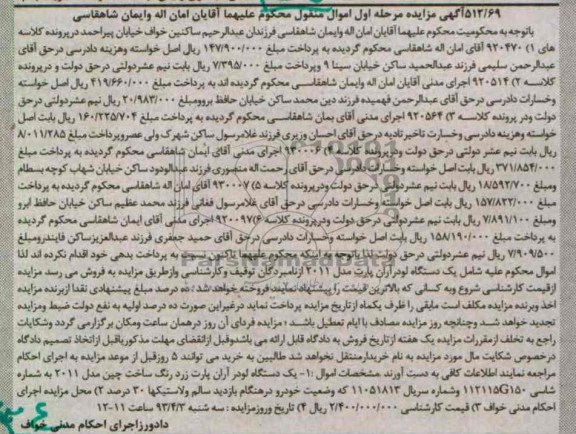 ۵۱۲/۶۹آگهی مزایده مرحله اول اموال منقول محکوم علیهما آقایان امان اله وایمان شاهقاسی
باتوجه به محکومیت محکوم علیهما آقایان امان اله وایمان شاهقاسی فرزندان عبدالرحیم ساکنین خواف خیابان پیراحمد درپرونده کلاسه
های ۱) ۹۲۰۴۷۰ آقای امان اله شاهقاسی محکوم گردیده به پرداخت مبلغ ۱۴۷/۹۰۰/۰۰۰ ریال اصل خواسته وهزینه دادرسی درحق آقای
عبدالرحمن سلیمی فرزند عبدالحمید ساکن خیابان سینا ۹ وپرداخت مبلغ ۷/۳۹۵/۰۰۰ ریال بابت نیم عشردولتی درحق دولت و درپرونده
کلاسه ۲) ۹۲۰۵۱۴ اجرای مدنی آقایان امان اله وایمان شاهقاسی محکوم گردیده اند به پرداخت مبلغ ۴۱۹/۶۶۰/۰۰۰ ریال اصل خواسته
وخسارات دادرسی درحق آقای عبدالرحمن فهمیده فرزند دین محمد ساکن خیابان حافظ برومبلغ ۲۰/۹۸۳/۰۰۰ ریال نیم عشردولتی درحق
دولت ودر پرونده کلاسه ۳) ۹۲۰۵۶۴ اجرای مدنی آقای یمان شاهقاسی محکوم گردیده به پرداخت مبلغ ۱۶۰/۲۲۵/۷۰۴ ریال بابت اصل
خواسته وهزینه دادرسی وخسارت تاخیر تادیه درحق آقای احسان وزیری فرزند غلامرسول ساکن شهرک ولی عصروپرداخت مبلغ ۸/۰۱۱/۲۸۵
ریال بابت نیم عشر دولتی درحق دولت ودرپرونده کلاسه ۴) ۹۳۰۰۰۶ اجرای مدنی آقای ایمان شاهقاسی محکوم گردیده به پرداخت مبلغ
۳۷۱/۸۵۴/۰۰۰ ریال بابت اصل خواسته وخسارات دادرسی درحق آقای رحمت اله منصوری فرزند عبدالودود ساکن خیابان شهاب کوچه بسطام
ومبلغ ۱۸/۵۹۲/۷۰۰ ریال بابت نیم عشردولتی درحق دولت ودرپرونده کلاسه ۵) ۹۳۰۰۰۷ آقای امان اله شاهقاسی محکوم گردیده به پرداخت
مبلغ ۱۵۷/۸۲۲/۰۰۰ ریال بابت اصل خواسته وخسارات دادرسی درحق آقای غلامرسول فغانی فرزند محمد عظیم ساکن خیابان حافظ ابرو
ومبلغ ۷/۸۹۱/۱۰۰ ریال بابت نیم عشردولتی درحق دولت ودرپرونده کلاسه ۶) ۹۲۰۰۹۷ اجرای مدنی آقای ایمان شاهقاسی محکوم گردیده
به پرداخت مبلغ ۱۵۸/۱۹۰/۰۰۰ ریال بابت اصل خواسته وخسارات دادرسی درحق آقای حمید جعفری فرزند عبدالعزیزساکن فایندرومبلغ
۷/۹۰۹/۵۰۰ ریال نیم عشردولتی درحق دولت لذا باتوجه به اینکه محکوم علیهما تاکنون نسبت به پرداخت بدهی خود اقدام نکرده اند لذا
اموال محکوم علیه شامل یک دستگاه لودرآران پارت مدل ۲۰۱۱ ازنامبردگان توقیف وکارشناسی وازطریق مزایده به فروش می رسد مزایده
ازقیمت کارشناسی شروع وبه کسانی که بالاترین قیمت را پیشنهاد نمایند فروخته خواهد شد : ده درصد مبلغ پیشنهادی نقدا ازبرنده مزایده
اخذ وبرنده مزایده مکلف است مابقی را ظرف یکماه ازتاریخ مزایده پرداخت نماید درغیراین صورت ده درصد اولیه به نفع دولت ضبط ومزایده
تجدید خواهد شد وچنانچه روز مزایده مصادف باایام تعطیل باشد ؛ مزایده فردای آن روز درهمان ساعت ومکان برگزارمی گردد وشکایات
راجع به تخلف ازمقررات مزایده یک هفته ازتاریخ فروش به دادگاه قابل ارائه می باشدوقبل ازانقضای مهلت مذکوریاقبل ازاتخاذ تصمیم دادگاه
درخصوص شکایت مال مورد مزایده به نام خریدارمنتقل نخواهد شد طالبین به خرید می توانند ۵ روزقبل از موعد مزایده به اجرای احکام
مراجعه نمایند اطلاعات کافی به دست آورند مشخصات اموال :۱- یک دستگاه لودر آران پارت زرد رنگ ساخت چین مدل ۲۰۱۱ به شماره
شاسی ۱۱۲۱۱۵G۱۵۰ وشماره سریال ۱۱۰۵۱۸۱۳ که وضعیت خودرو درهنگام بازدید سالم ولاستیکها ۳۰ درصد ۲) محل مزایده اجرای
احکام مدنی خواف ۳) قیمت کارشناسی ۲/۴۰۰/۰۰۰/۰۰۰ ریال ۴) تاریخ وروزمزایده : سه شنبه ۹۳/۴/۳ ساعت ۱۱-۱۲
دادورزاجرای احکام مدنی خواف